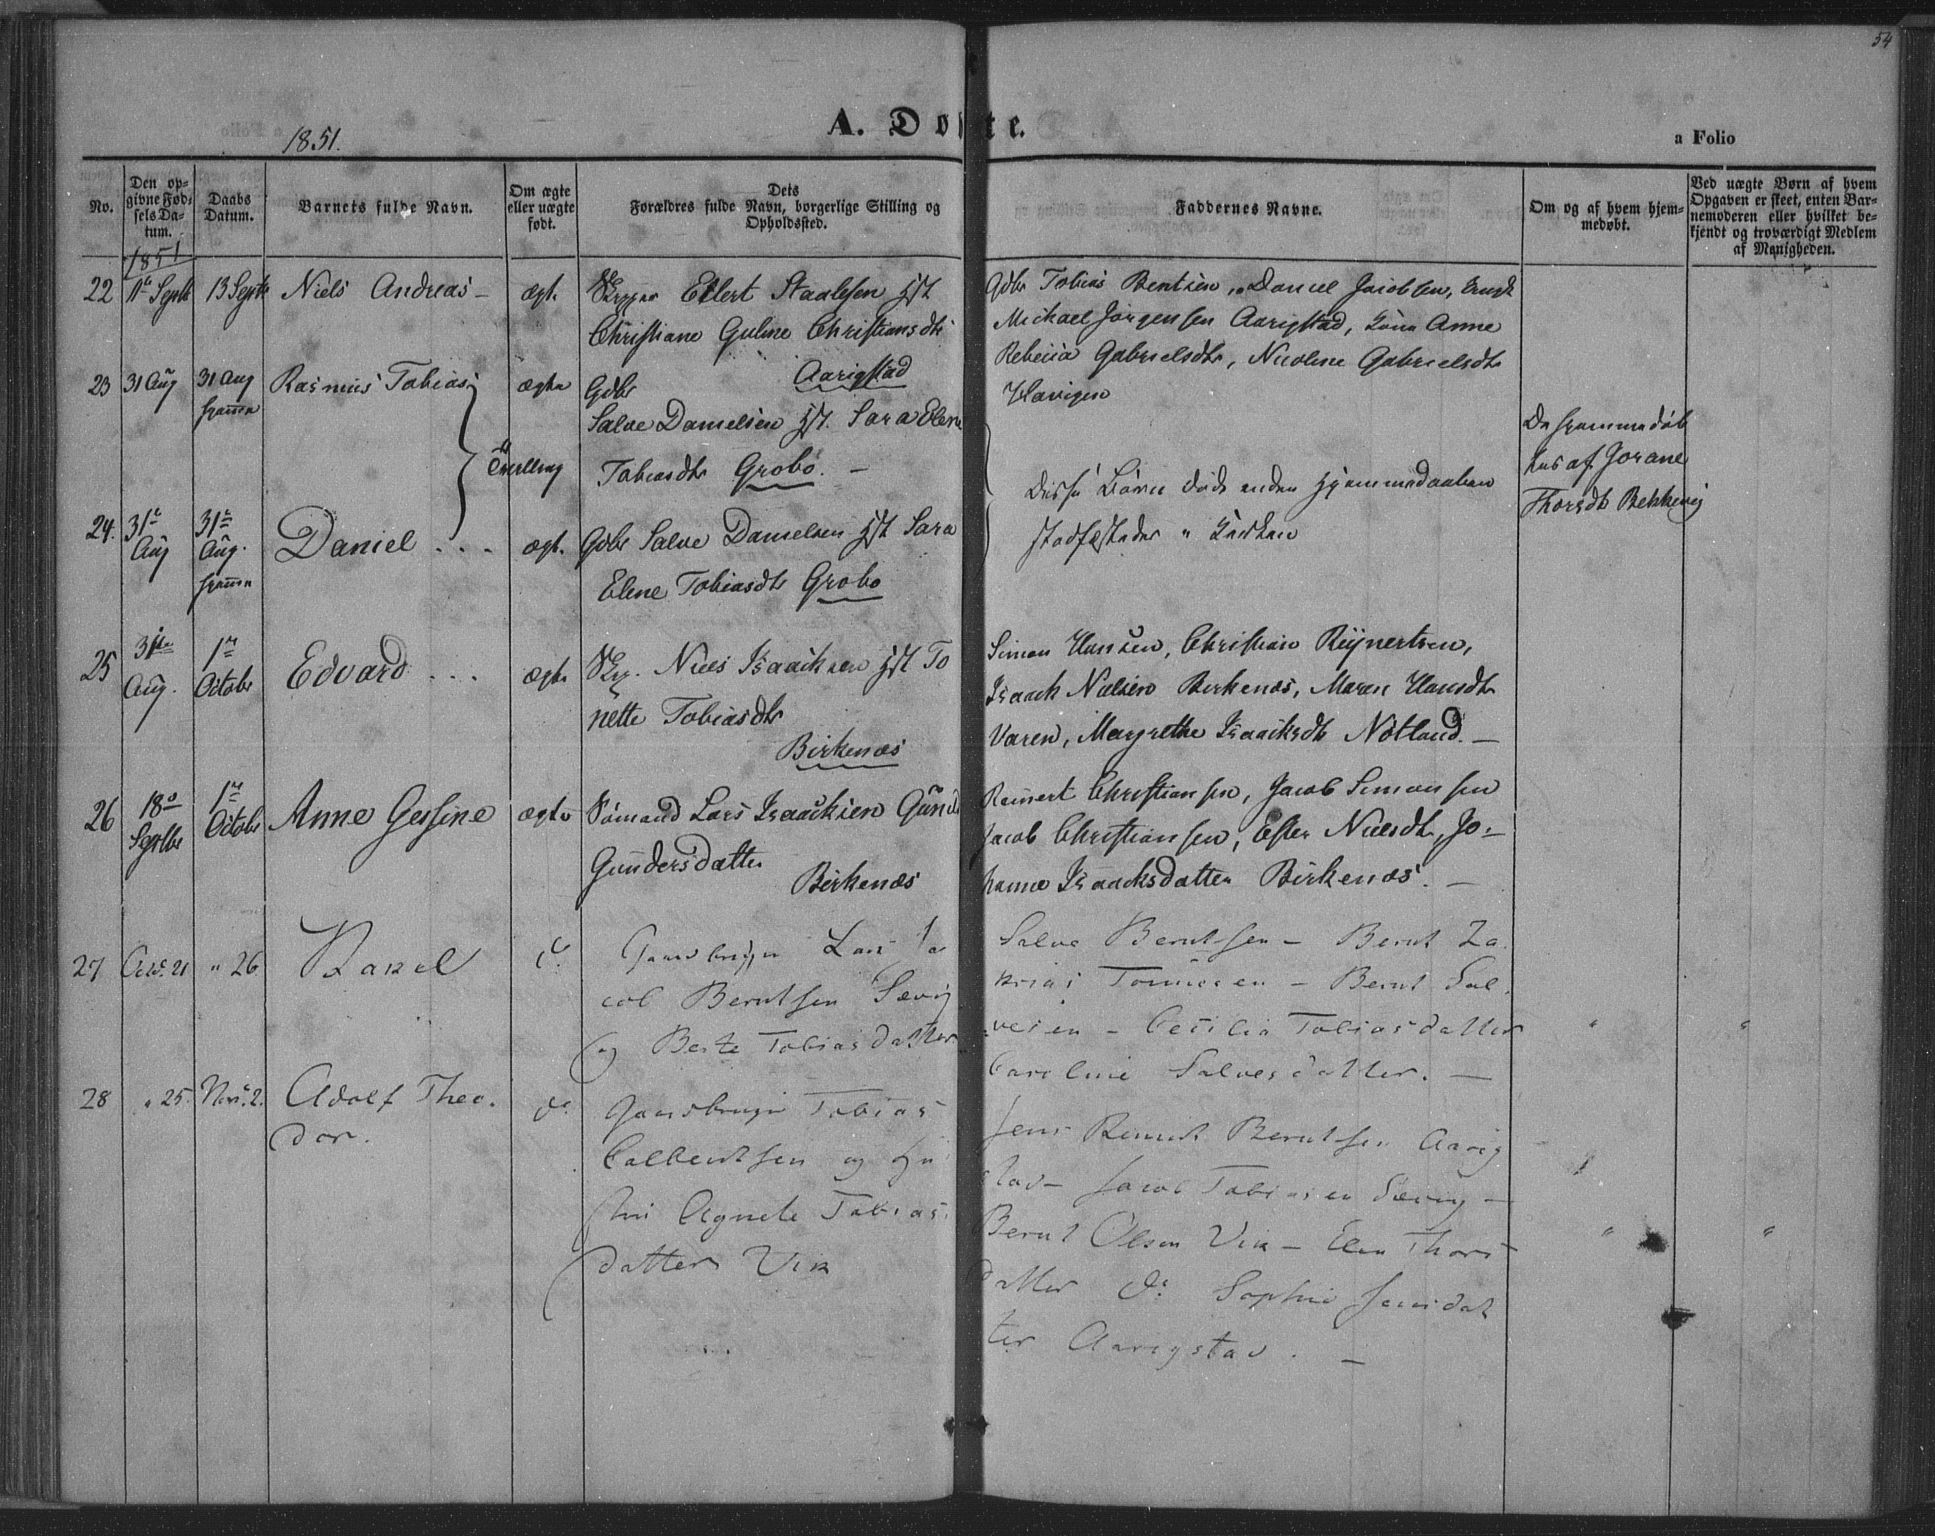 54
1851.
A. Døbte.
a Folio
No.
Den op-
givne Fød-
sels Da-
tum.
Daabs
Datum.
Barnets fulde Navn.
Om ægte
eller uægte
født.
Dets
Forældres fulde Navn, borgerlige Stilling og
Opholdssted.
Faddernes Navne.
Om og af hvem hjem-
medøbt.
Ved uægte Børn af hvem
Opgaven er skeet, enten Bar-
nemoderen eller hvilket be-
kjendt og troværdigt Medlem
af Menigheden.
1851
22 11te Septb 13 Septb Niels Andreas – ægte Skipper Ellert Staalesen Hst
Christiane Guline Christiansdtr
Aarigstad
Gdbr Tobias Bentsen, Daniel Jacobsen,
Michael Jørgensen Aarigstad, Kone Anne
Rebecca Gabrielsdtr, Nicoline Gabrielsdtr
23 31 Aug 31 Aug hjemme Rasmus Tobias ægte Gdbr
Salve Danielsen Hst. Sara Elene
Tvilling Tobiasdtr Grobø. –
Disse Børn døde inden Hjemmedaaben
stadfæstedes i Kirken
De hjemmedøb
tes af Jorane
Thorsdtr Bekkevig
24. 31te Aug 31te Aug. hjemme Daniel . . . ægte. Gdbr Salve Danielsen Hst Sara
Elene Tobiasdtr Grobø
25 31te Aug. 1ste Octobr Edvard . . . ægte Skp. Niels Isaacksen Hst To
nette Tobiasdtr
Birkenæs
Simon Hansen, Christian Reynertsen,
Isaack Nielsen Birkenæs, Maren Hansdtr
Varen, Margrethe Isaacksdtr Nøtland. –
26 18de Septbr 1ste Octobr Anne Gesine ægte Sømand Lars Isaacksen
Gundersdatter
Birkenæs
Reinert Christiansen, Jacob Simonsen
Jacob Christiansen, Ester Nielsdtr, Jo-
hanne Isaacksdatter Birkenæs. –
27 Octbr. 21 " 26 Rakel do. Gaardbruger Lars Ja
cob Berntsen Sævig
og Berte Tobiasdatter
Salve Berntsen – Bernt Za
krias Tønnesen – Bernt Sal
vesen – Cecilia Tobiasdatter
Caroline Salvesdatter. –
" "
28 " 25. Novr. 2. Adolf Theo.
dor.
do. Gaardbruger Tobias
Calbentsen og Hu
stru Agnete Tobias
datter Vik
Jens Reinert Berntsen Aarig
stad – Jacob Tobiasen Sævig –
Bernt Olsen Vik – Elen Thors
datter do. Sophie Jensdat
ter Aarigstad. –
" "